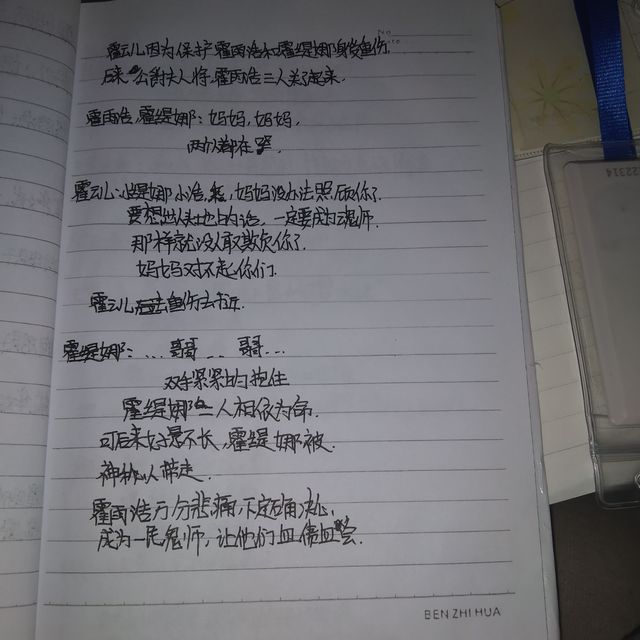 霍云儿因为保护霍雨浩和霍缇娜身负重伤.
后来公爵夫人将霍雨浩三人关了起来.
霍雨浩,霍缇娜:妈妈,妈妈,
两人都在哭.
霍云儿:小缇娜小浩,妈妈没办法照顾你了.
要想出人头地上的话,一定要成为魂师.
那样就没人敢欺负你了.
妈妈对不起你们.
霍云儿重伤去世.
霍缇娜:...哥哥...哥哥...
双手紧紧的抱住
霍缇娜二人相依为命.
可后来好景不长,霍缇娜被
神秘人带走.
霍雨浩万分悲痛,下定确决心,
成为一民鬼师,让他们血债血尝.
BEN ZHI HUA
22314